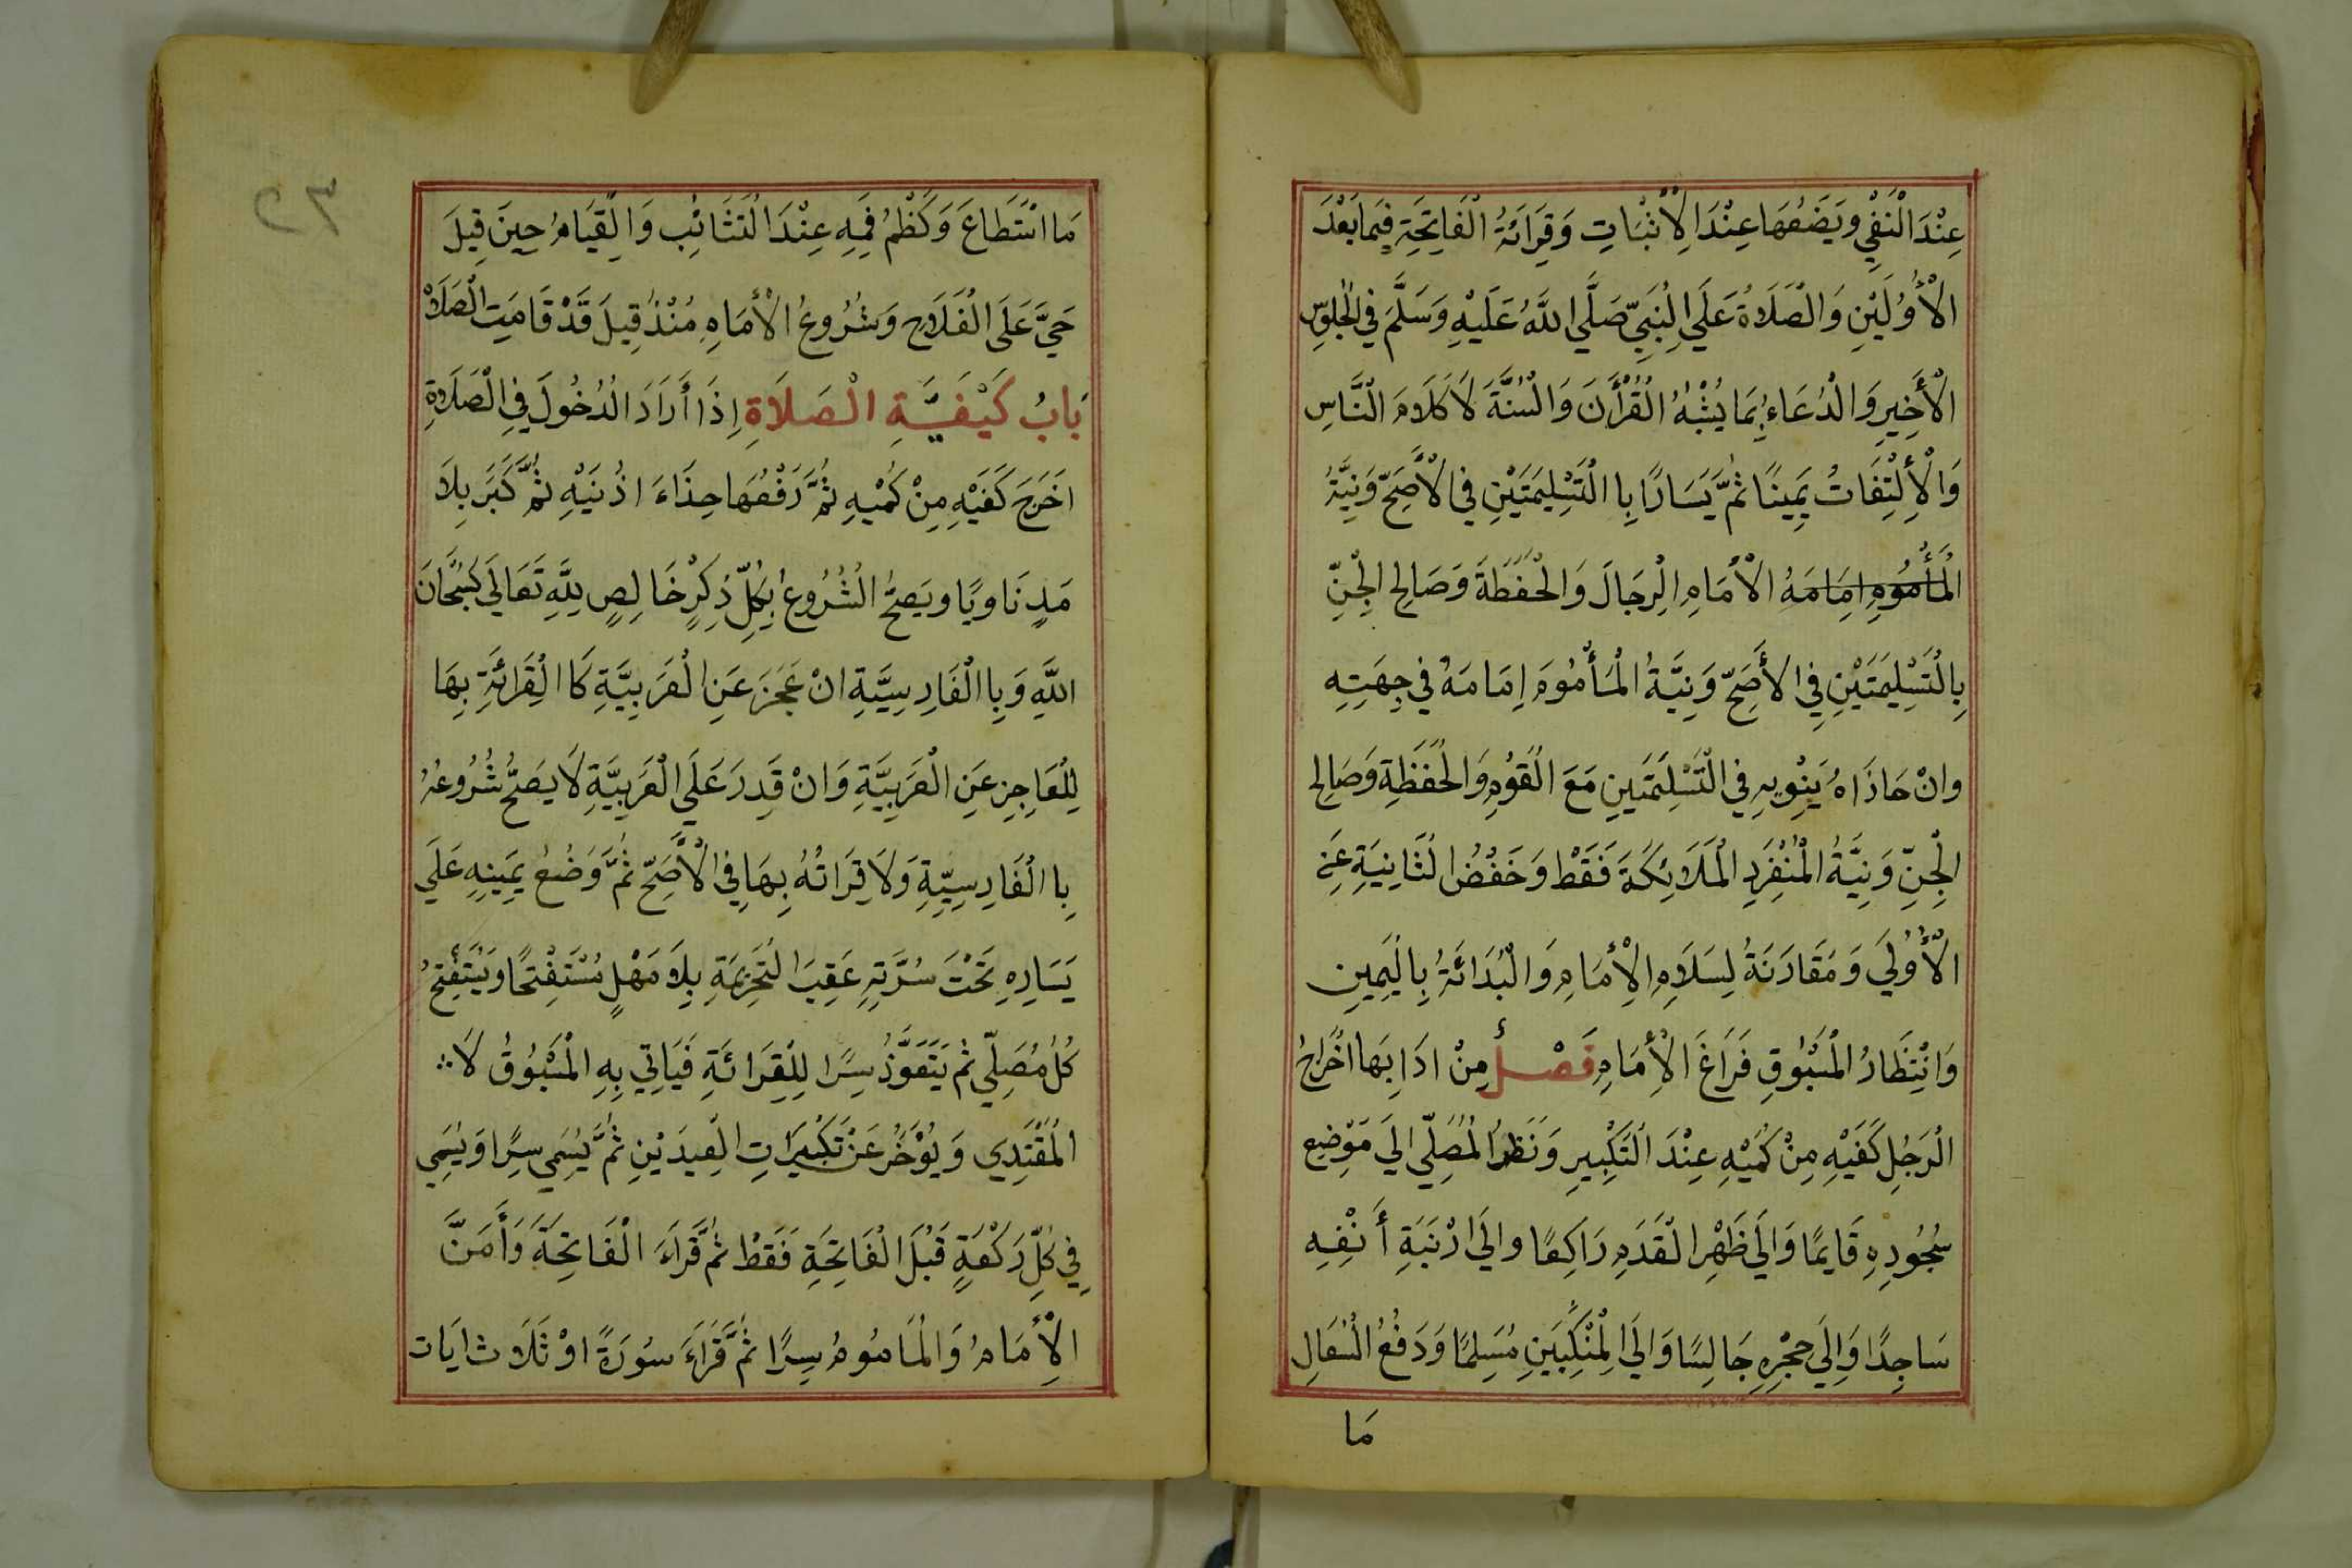 عِنْدَ الْنَفْيِ وَيَضَعُهَا عِنْدَ الْاِثْبَاتِ وَقِرَائَةُ الْفَاتِحَةِ فِيمَا بَعْدَ
الْأُوُلَيْنِ وَالْصَلَاةُ عَلَي الْنَبِيِّ صَلَّي اللَّهُ عَلَيْهِ وَسَلَّمَ فِي الْجُلُوسِ
الْأَخِيرِ وَالْدُعَاءُ بِمَا يُشْبِهُ الْقُرْأَنَ وَالْسُنَّةَ لَا كَلَامَ الْنَّاسِ
وَالْأِلْتِفَاتُ يَمِينًا ثُمَّ يَسَارًا بِا الْتَسْلِيمَتَيْنِ فِي الْأَصَحِّ وَنِيَّةُ
الْمَأْمُومِ اِمَامَهُ الْأمَامِ الْرِجَالَ وَالْحْفَظَةَ وَصَالِحِ الْجِنِّ
بِالْتَسْلِيمَتَيْنِ فِي الأَصَحِّ وَنِيَّةُ الْمَأْمُومَ اِمَامَهُ فِي جِهَتِهِ
وانْ حَاذَاهُ يَنْوِيهِ فِي الْتَسْلِمَتَينِ مَعَ الْقَوْمِ وَالْحَفَظَةِ وَصَالِحِ
الْجِنِّ وَنِيَّةُ الْمُنْفَرِدِ الْمَلَائِكَةَ فَقَطْ وَخَفْضُ الثَانِيَةِ عَنِ
الْأُوُلَي وَمَقَارَنَةُ لِسَلَامِ الْأِمَامِ وَالْبُدَائَةُ بِالْيَمِينِ
وَانْتِظَارُ الْمَسْبُوقِ فَرَاغَ الْأِمَامِ فَصْلٌ مِنْ ادَابِهَا اخْرَاجُ
الْرَجُلِ كَفَيْهِ مِنْ كُمَيْهِ عِنْدَ الْتَكْبِيرِ وَنَظَرُ الْمُصَلِّي الَي مَوْضِعِ
سُجُودِهِ قَايِمًا وَالَي ظَهْرِ الْقَدَمِ رَاكِعًا وَالَي ارْنَبَةِ أَنْفِهِ
سَاجِدًا وَالَي حِجْرِهِ جَالِسًا وَالَي الْمِنْكَبَيَنِ مُسَلِمًا وَدَفْعُ الْسُعَالِ
مَا
٢٣
مَا اسْتَطَاعَ وَكَظْمُ فَمِهِ عِنْدَ الْتَثَائِبِ وَالْقِيَامُ حِينَ قِيلَ
حَيَّ عَلَى الْفَلَاحِ وَشُرُوعُ الْأمَامِ مُنْذُ قِيلَ قَدْ قَامَتِ الْصَلَاةْ
بَابُ كَيْفِيَّةِ الْصَلَاةِ اِذَا أَرَادَ الْدُخُولَ فِي الْصَلَاةِ
اخَرَجَ كَفَيْهِ مِنْ كُمَيْهِ ثُمَّ رَفْعُهَا حِذَاءَ اذُنَيْهِ ثُمَّ كَبَرَ بِلَا
مَدٍ نَاوِيًا وَيَصِحُّ الْشُرُوعُ بِكُلِّ ذِكْرٍ خَالِصٍ لِلَّهِ تَعَالَي كَسُبْحَانَ
اللَّهِ وَبِا الْفَارِسِيَّةِ انْ عَجَزَ عَنِ الْعَرَبِيَّةِ كَا الْقِرَائَةِ بِهَا
لِلْعَاجِزِ عَنِ الْعَرَبِيَّةِ وَانْ قَدِرَ عَلَي الْعَرَبِيَّةِ لَا يَصَحُّ شُرُوعُهُ
بِا الْفَارِسِيِّةِ وَلَا قِرَاتُهُ بِهَا فِي الْأَصَحِّ ثُمَّ وَضُعُ يَمِينِهِ عَلَي
يَسَارِهِ تَحْتَ سُرَّتِهِ عَقِبَ الْتَحْرِيمَةِ بِلَا مَهْلٍ مُسْتَفْتِحًا وَيَسْتَفْتِحُ
كُلُ مُصَلِّي ثُمَ يَتَعَوَّذُ سِرًا لِلْقِرَائَةِ فَيَاتِي بِهِ الْمَسْبُوُقُ لَا
الْمُقْتَدِي وَيُؤَخَّرُ عَنْ تَكْبِيرَاتِ الْعِيدَيْنِ ثُمَّ يُسَمِي سِرًا وَيُسَمِي
فِي كُلِّ رَكْعَةٍ قَبْلَ الْفَاتِحَةِ فَقَطْ ثُمَّ قَرَاءَ الْفَاتِحَةَ وَأَمَنَّ
الْأِمَامُ وَالْمَامُومُ سِرًا ثُمَّ قَرَاءَ سُورَةً اوْ ثَلَاث ايَات